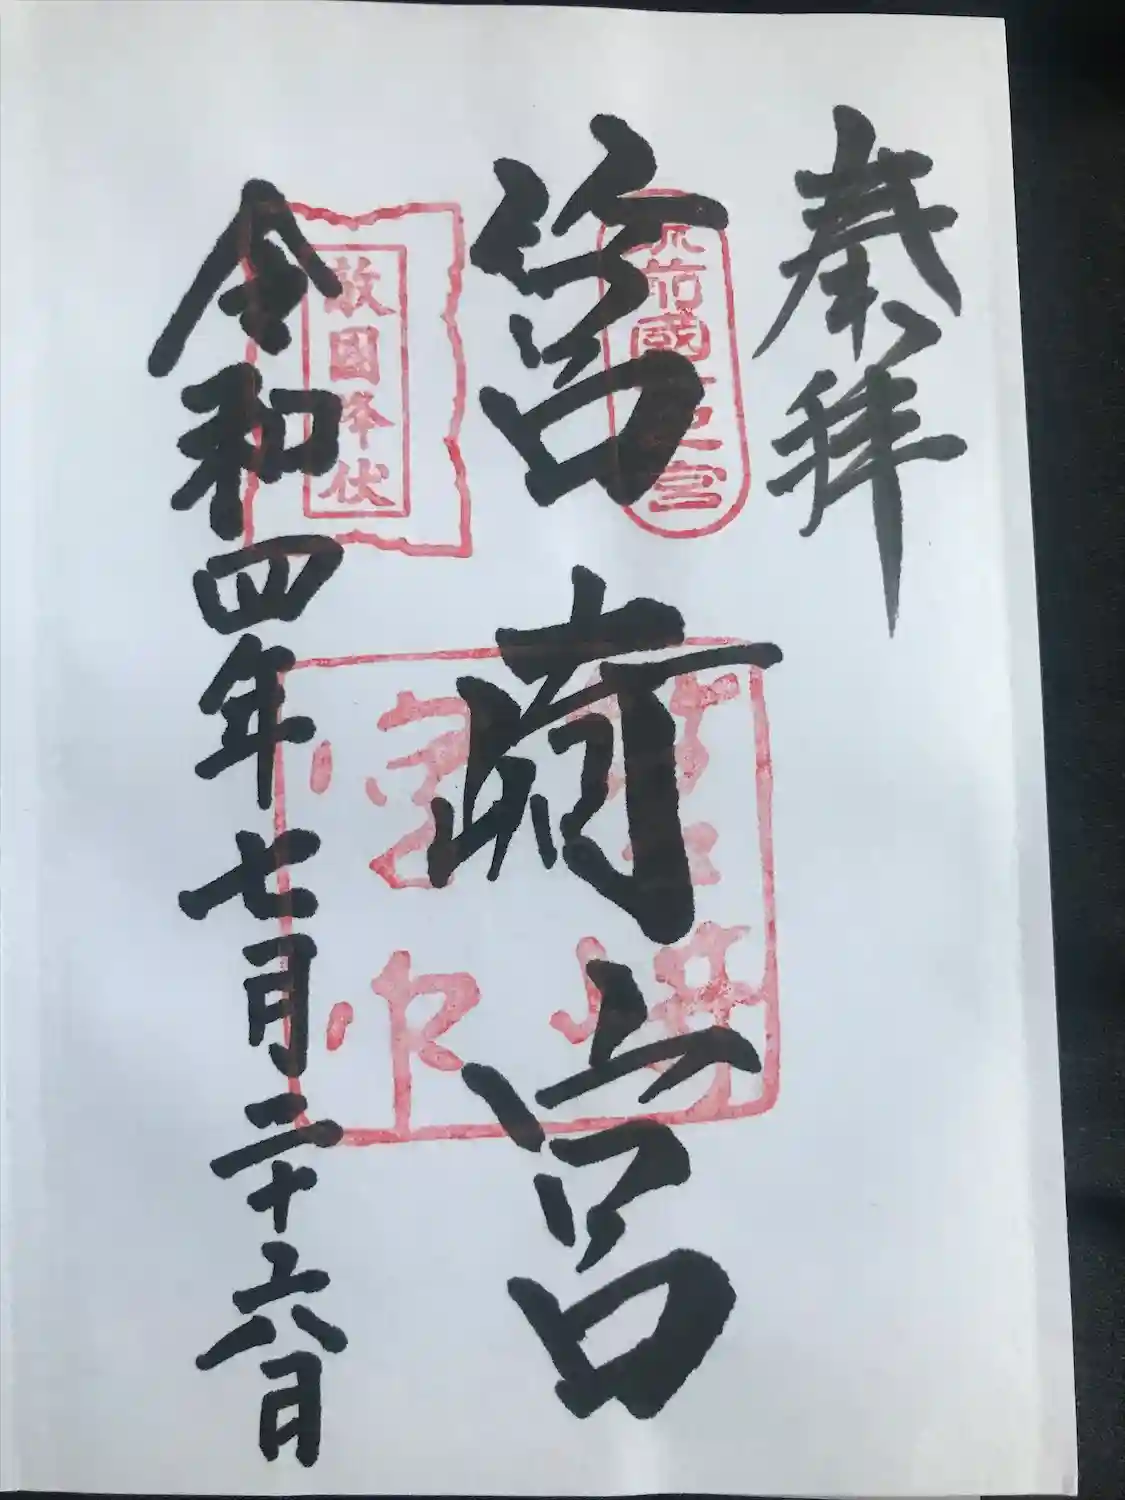 奉拝
筑前國一之宮
筥崎宮
敵國降伏
令和四年七月二十六日